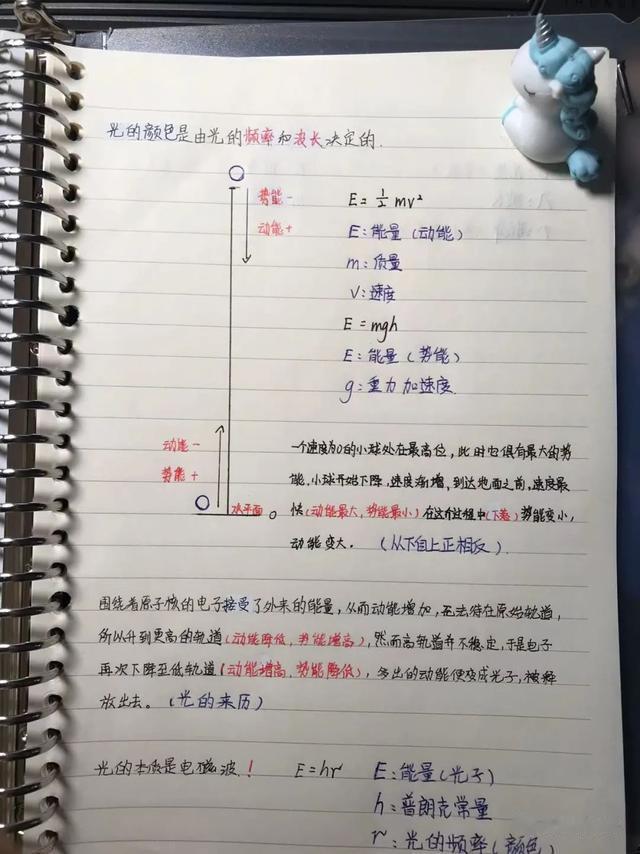 光的颜色是由光的频率和波长决定的.
势能-
动能+
E=½mv²
E:能量(动能)
m:质量
V:速度
E=mgh
E:能量(势能)
g:重力加速度.
动能-
势能+
水平面 0
一个速度为0的小球处在最高位,此时它俱有最大的势
能,小球开始下降,速度渐增,到达地面之前,速度最
快(动能最大,势能最小)在这个过程中(下落)势能变小,
动能变大。(从下自上正相反).
围绕着原子核的电子接受了外来的能量,从而动能增加,无法待在原始轨道,
所以升到更高的轨道(动能降低,势能增高),然而高轨道并不稳定,于是电子
再次下降至低轨道(动能增高,势能降低),多出的动能便变成光子,被释
放出去。(光的来历)
光的本质是电磁波! E=hr
E:能量(光子)
h:普朗克常量
r:光的频率(颜色)